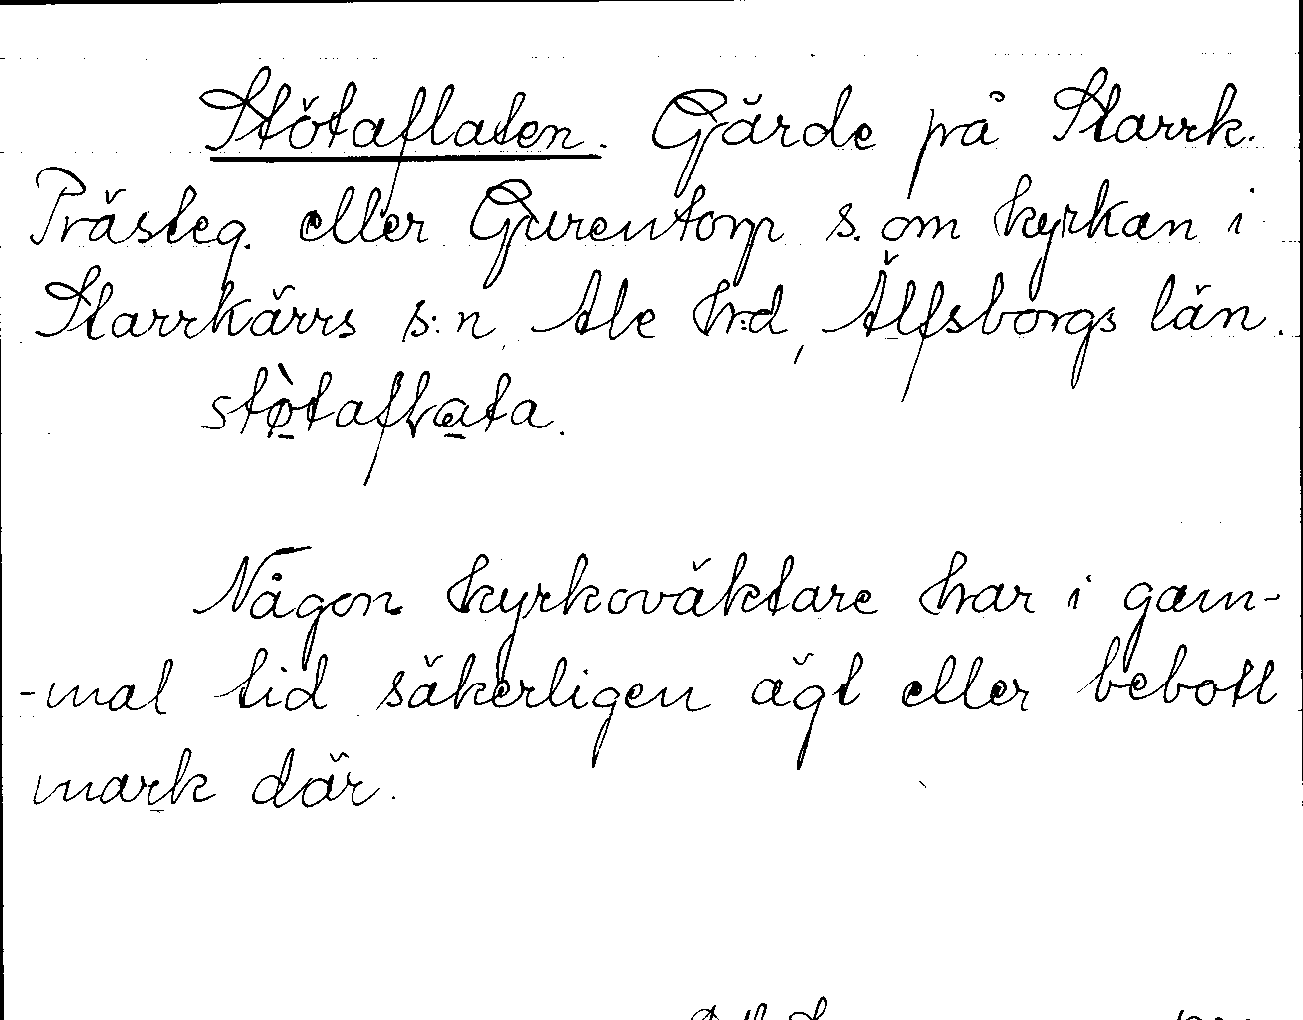 Stötaflaten. Gärde på Starrk.
Prästeg. eller Gurentorp s. om kyrkan i
Starrkärrs s:n, Ale h:d, Älfsborgs län.
stø̀taflata.
Någon kyrkoväktare har i gam-
-mal tid säkerligen ägt eller bebott
mark där.